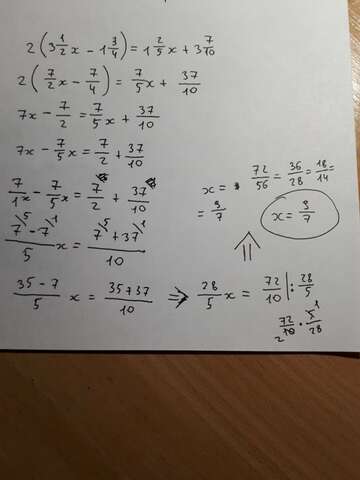 2(3 1/2 x - 1 3/4) = 1 2/5 x + 3 7/10
2(7/2 x - 7/4) = 7/5 x + 37/10
7x - 7/2 = 7/5 x + 37/10
7x - 7/5 x = 7/2 + 37/10
7/1 x - 7/5 x = 7/2 + 37/10
7\5 - 7\1 / 5 x = 7\5 + 37\1 / 10
35 - 7 / 5 x = 35 + 37 / 10 ⇒ 28/5 x = 72/10 |: 28/5
72/10 2 · 5 1/28
x = 72/56 = 36/28 = 18/14 =
= 9/7
x = 9/7